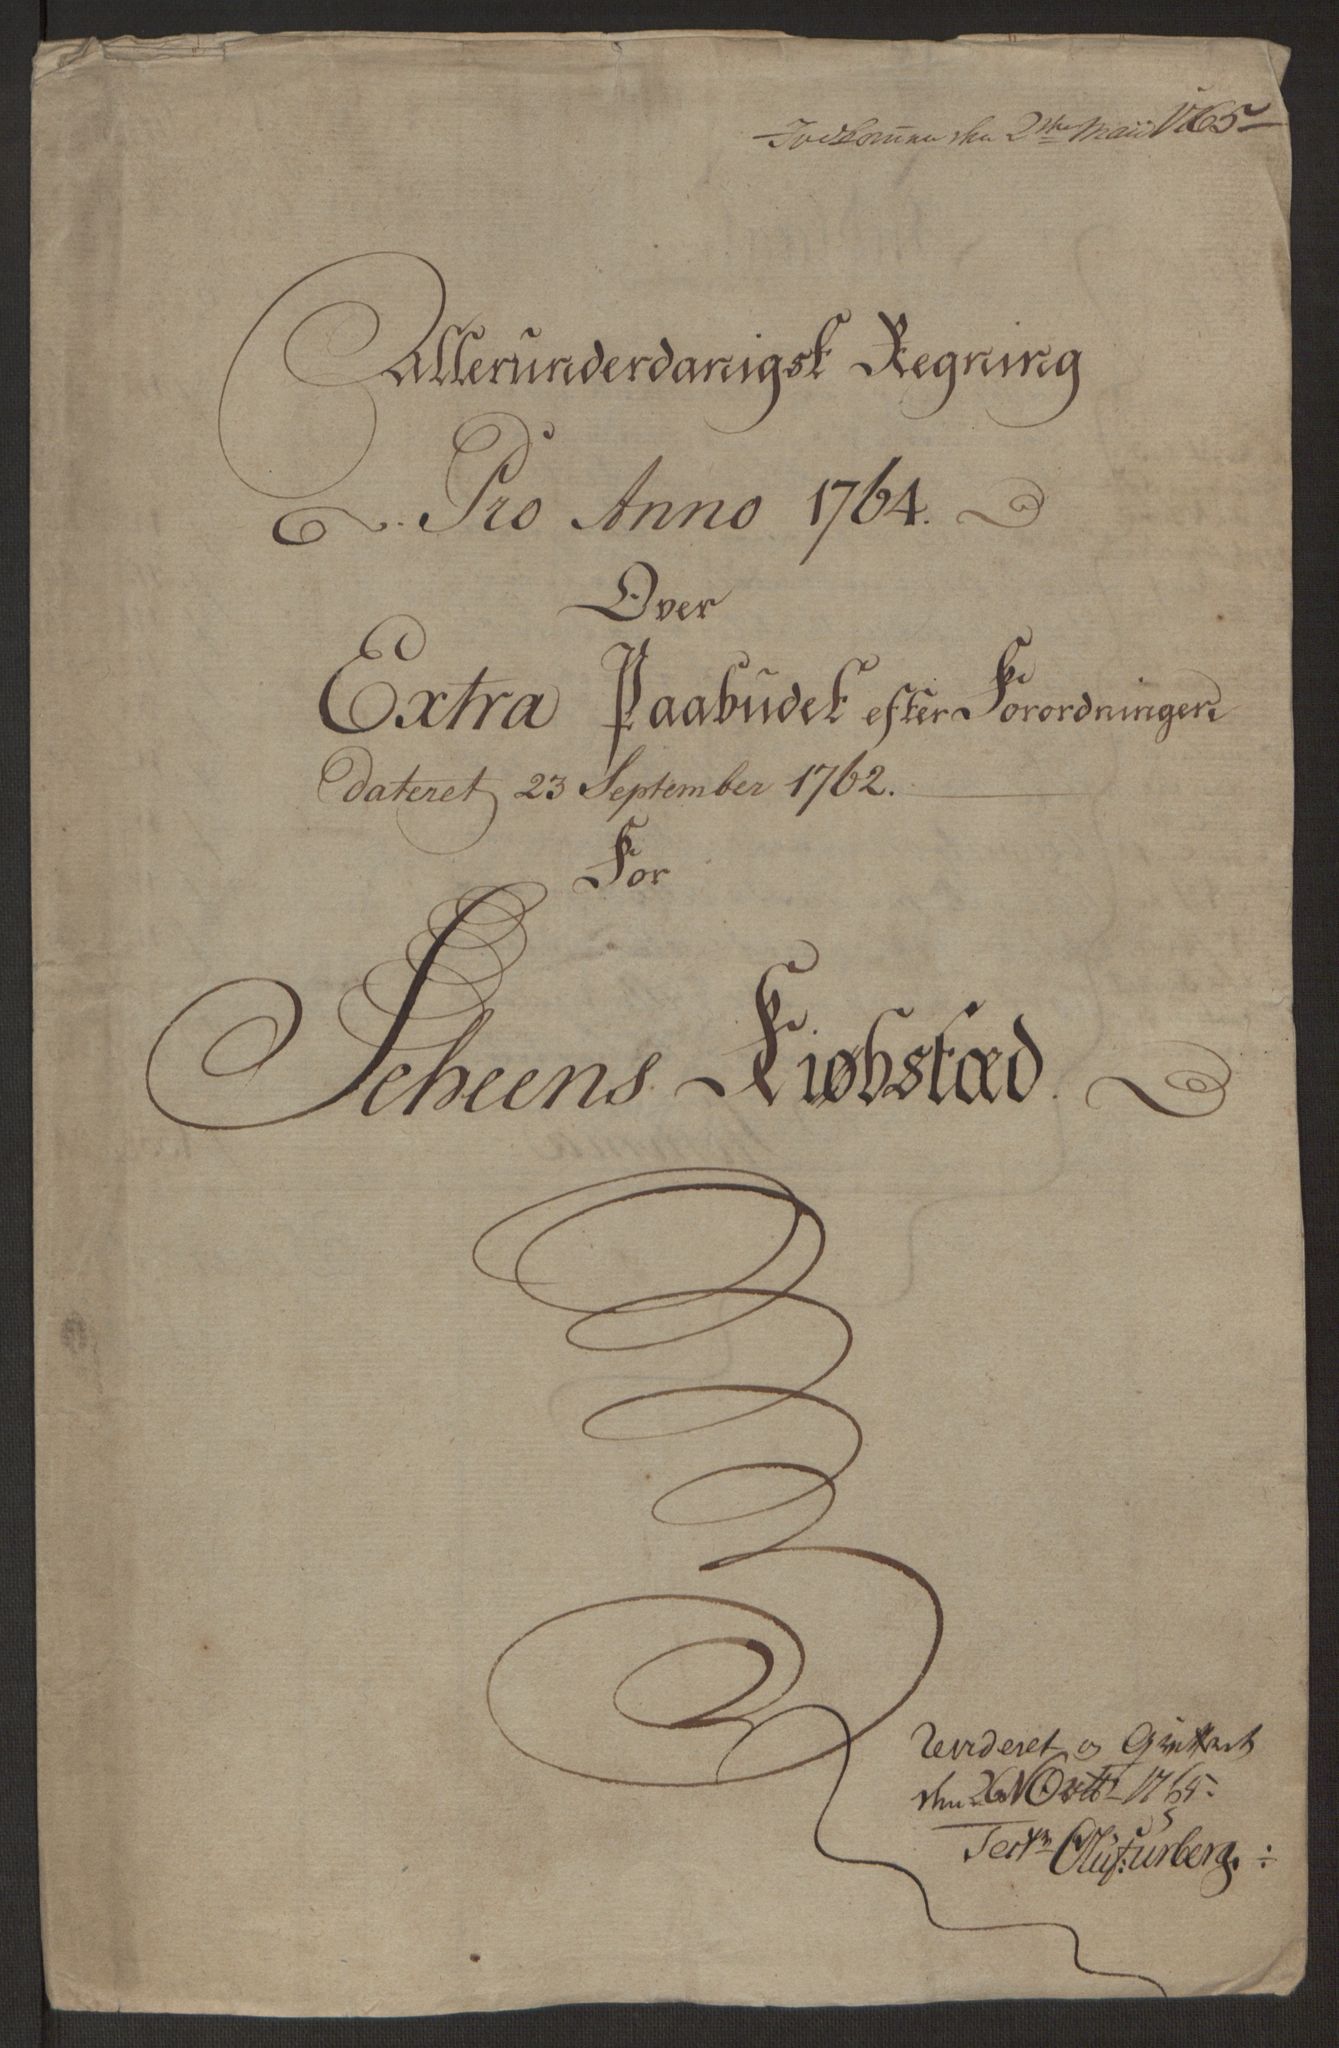 Indkommen den 2den Maii 1765
Allerunderdanigst Regning
Pro Anno 1764.
Over
Extra Paabudet efter Forordningen
dateret 23 September 1762.
For
Scheens Kiøbstæd.
Revideret og Qvitteret
den 26 1765.